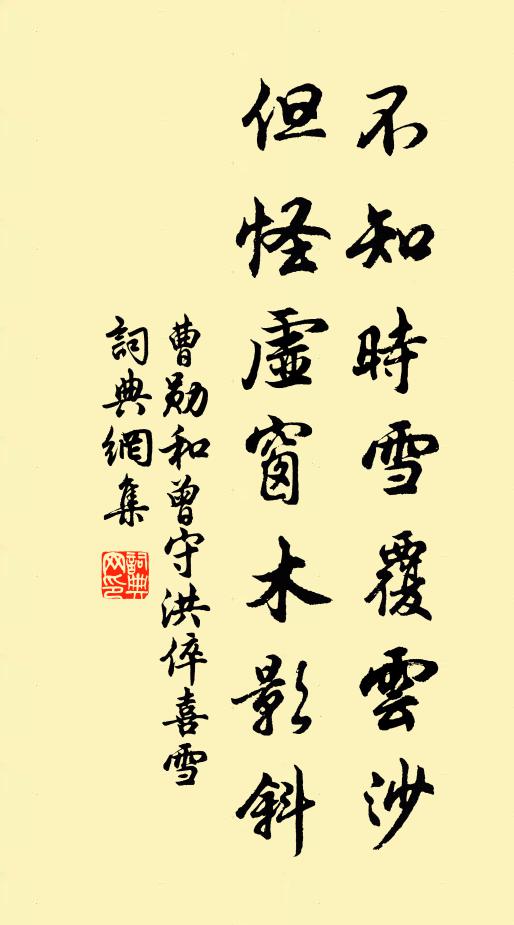 不知時雪覆雲沙
但怪虛窗木影斜
曹勛和曾守洪倅喜雪
詞典網集
詞典网印